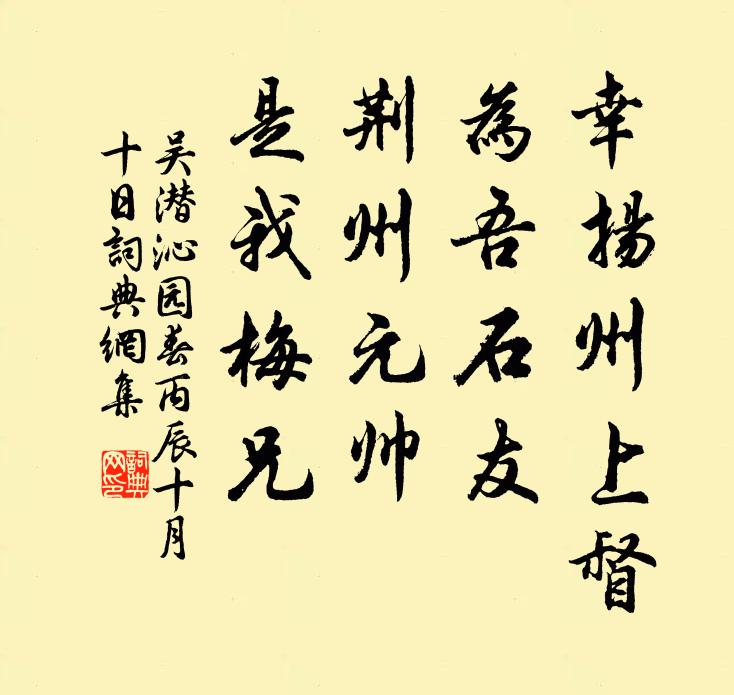 幸揚州上督
為吾石友
荆州元帅
是我梅兄
吴潜沁园春丙辰十月
十日詞典網集
詞典
网印